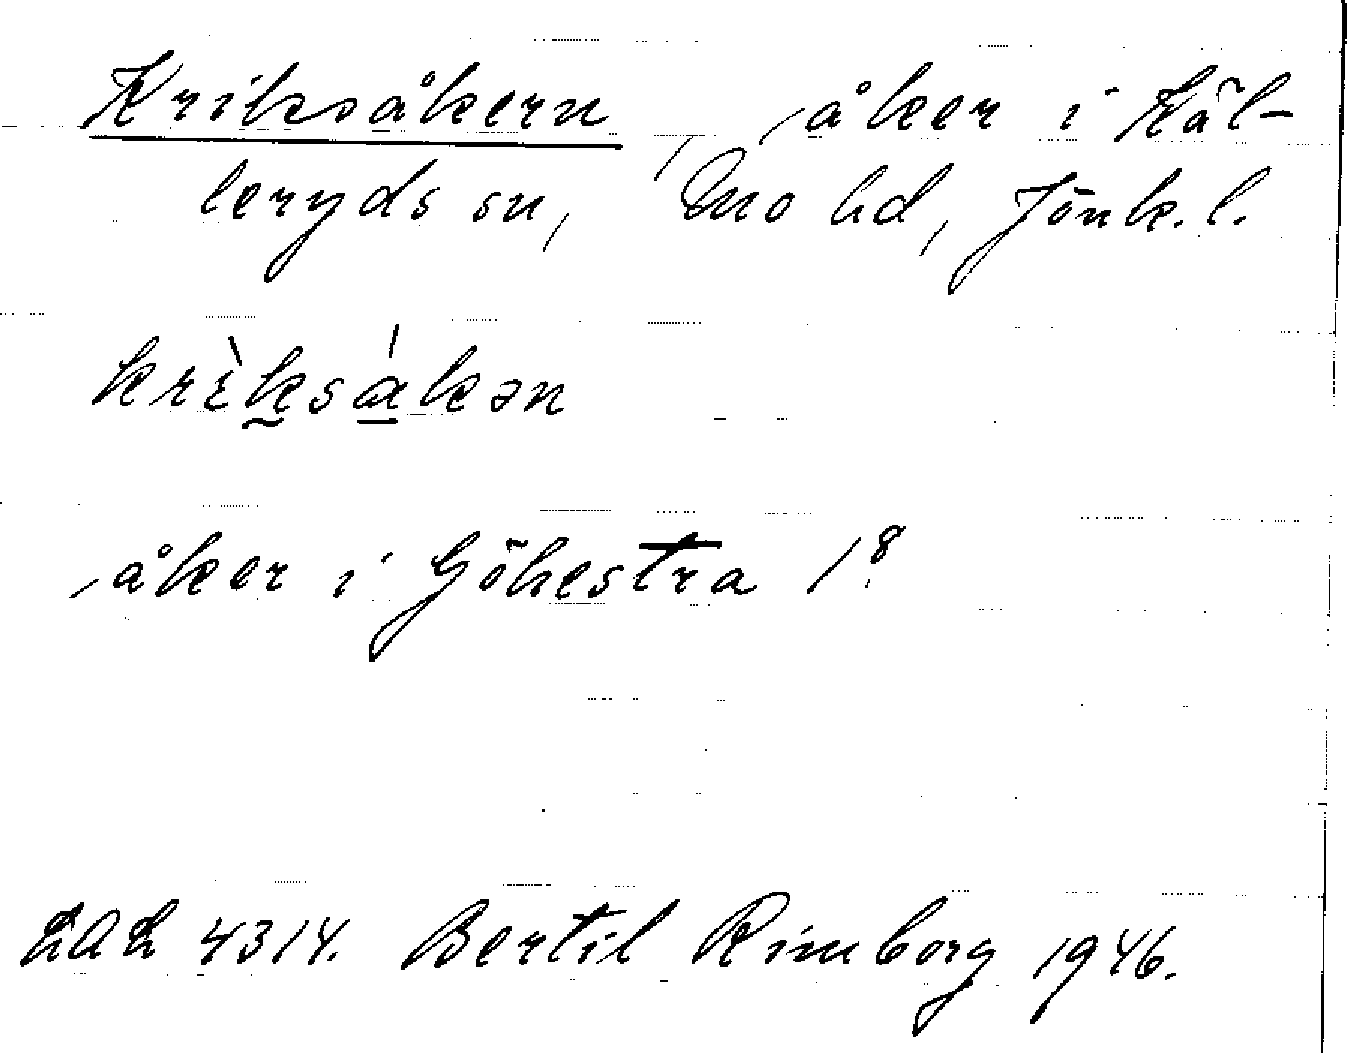 Kriksåkern, åker i Käl-
leryds sn, Mo hd, Jönk. l.
krìksákən
åker i Göhestra 1⁸
LAL 4314. Bertil Rimborg 1946.